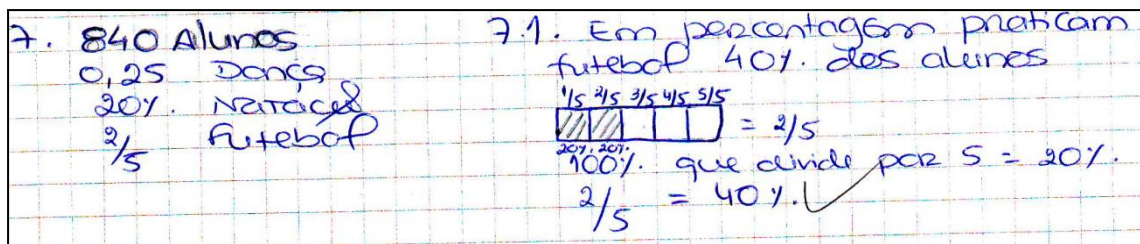 7. 840 Alunos
0,25 Dança
20%. Natação
2/5 Futebol
7.1. Em percentagem praticam
futebol 40%. dos alunos
1/5 2/5 3/5 4/5 5/5
= 2/5
20%. 20%.
100%. que divide por 5 = 20%.
2/5 = 40%.